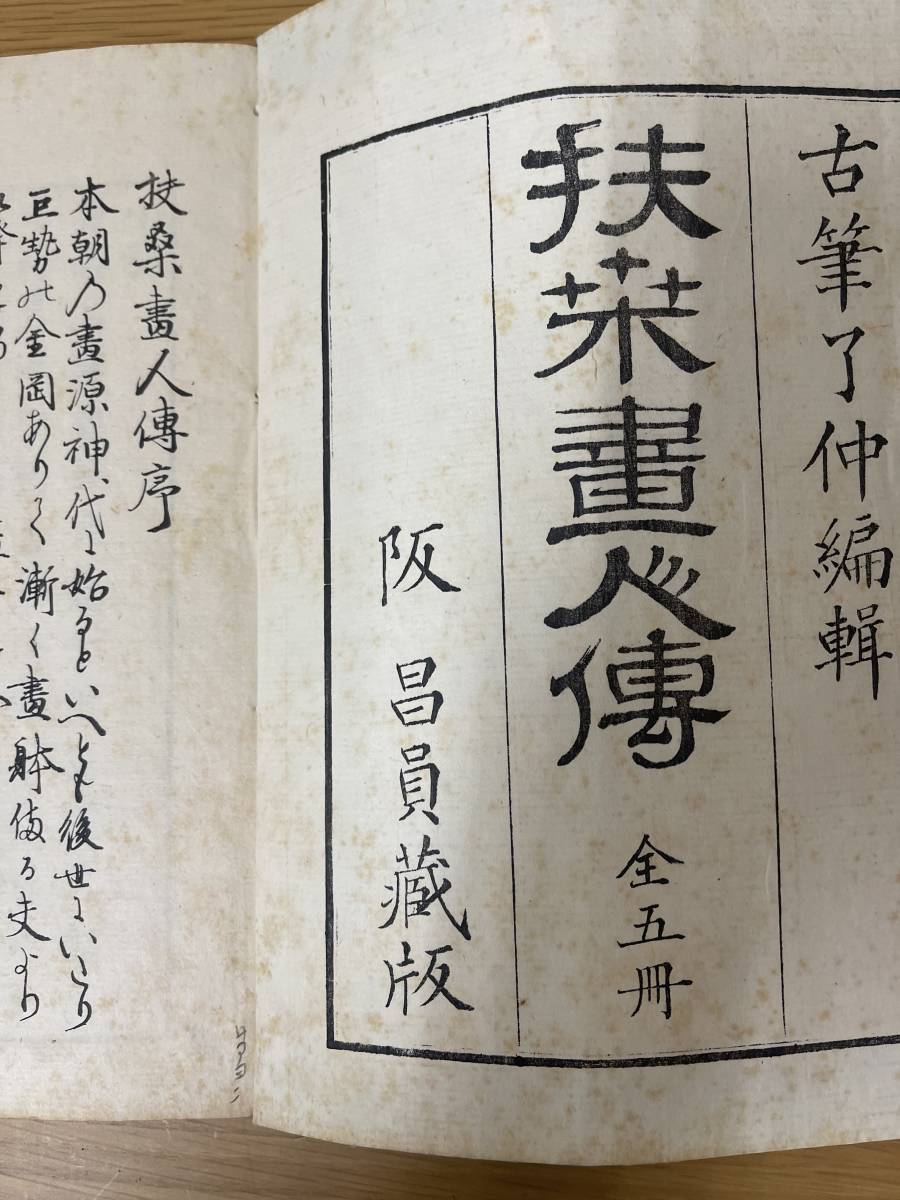 古筆了仲編輯
扶桒畫人傳
全五冊
阪 昌員藏版
扶桑畫人傳序
本朝乃畫源神代に始るといへとも後世にいたり
巨勢の金岡ありて漸く畫躰備る夫より